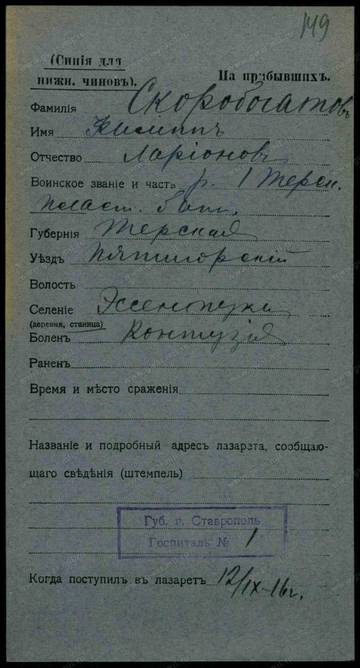 149
(Синія для
нижн. чиновъ).
На прибывшихъ.
Фамилія Скоробогатовъ
Имя Филиппъ
Отчество Ларіоновъ
Воинское званіе и часть р. 1 Терск.
Пласт. бат.
Губернія Терская
Уѣздъ Пятигорскій
Волость
Селеніе Эссентуки
(деревня, станица)
Боленъ Контузія
Раненъ
Время и мѣсто сраженія
Названіе и подробный адресъ лазарета, сообщаю-
щаго свѣдѣнія (штемпель)
Губ. г. Ставрополь
Госпиталь № 1
Когда поступилъ въ лазаретъ 12/IX-16 г.